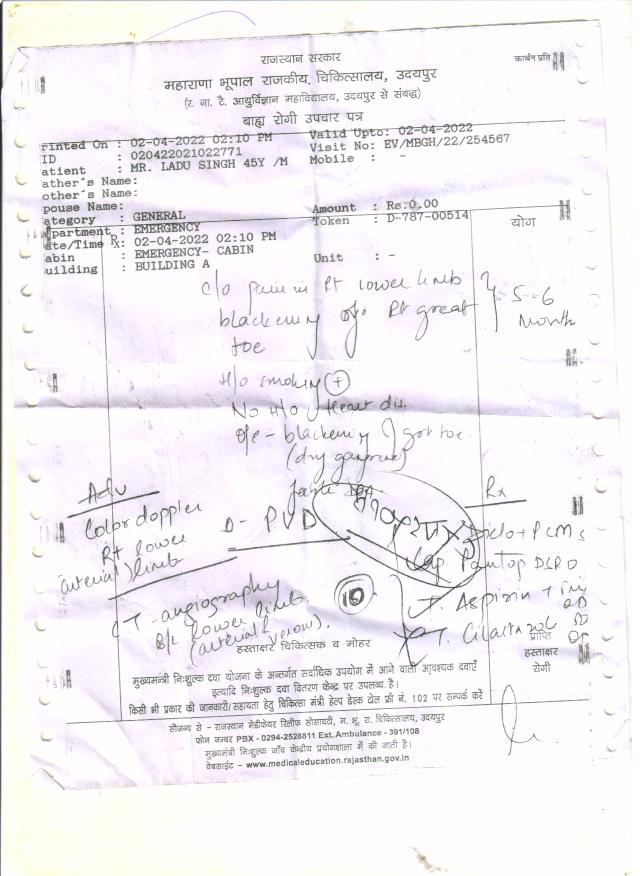 राजस्थान सरकार
कार्बन प्रति
महाराणा भूपाल राजकीय, चिकित्सालय, उदयपुर
(र. ना. टै. आयुर्विज्ञान महाविद्यालय, उदयपुर से संबद्ध)
बाह्य रोगी उपचार पत्र
rinted On : 02-04-2022 02:10 PM Valid Upto: 02-04-2022
ID : 020422021022771 Visit No: EV/MBGH/22/254567
atient : MR. LADU SINGH 45Y /M Mobile : -
ather's Name:
other's Name:
pouse Name:
ategory : GENERAL Amount : Rs:0.00
partment : EMERGENCY Token : D-787-00514
योग
ate/Time : 02-04-2022 02:10 PM
Rx
abin : EMERGENCY- CABIN Unit : -
uilding : BUILDING A
c/o pain in Rt lower limb
blackening of Rt great
toe
5-6
Month
H/o smoking (+)
No H/o Heart dis.
o/e - blackening of toe
(dry gangrene)
Adv
Color doppler
Rt lower
(arterial) limb
D- PVD
Rx
Diclo + PCM
Cap Pantop DSR OD
T. Aspirin
T.
CT- angiography
B/L lower limb
(arterial &
venous).
10
हस्ताक्षर चिकित्सक व मोहर
प्राप्ति
हस्ताक्षर
रोगी
मुख्यमन्त्री निःशुल्क दवा योजना के अन्तर्गत सर्वाधिक उपयोग में आने वाली आवश्यक दवाएँ
इत्यादि निःशुल्क दवा वितरण केन्द्र पर उपलब्ध है।
किसी भी प्रकार की जानकारी/सहायता हेतु चिकित्सा मंत्री हेल्प डेस्क टोल फ्री नं. 102 पर सम्पर्क करें
सौजन्य से - राजस्थान मेडीकेयर रिलीफ सोसायटी, म. भू. रा. चिकित्सालय, उदयपुर
फोन नम्बर PBX - 0294-2528811 Ext. Ambulance - 391/108
मुख्यमंत्री निःशुल्क जाँच केन्द्रीय प्रयोगशाला में की जाती है।
वेबसाईट - www.medicaleducation.rajasthan.gov.in